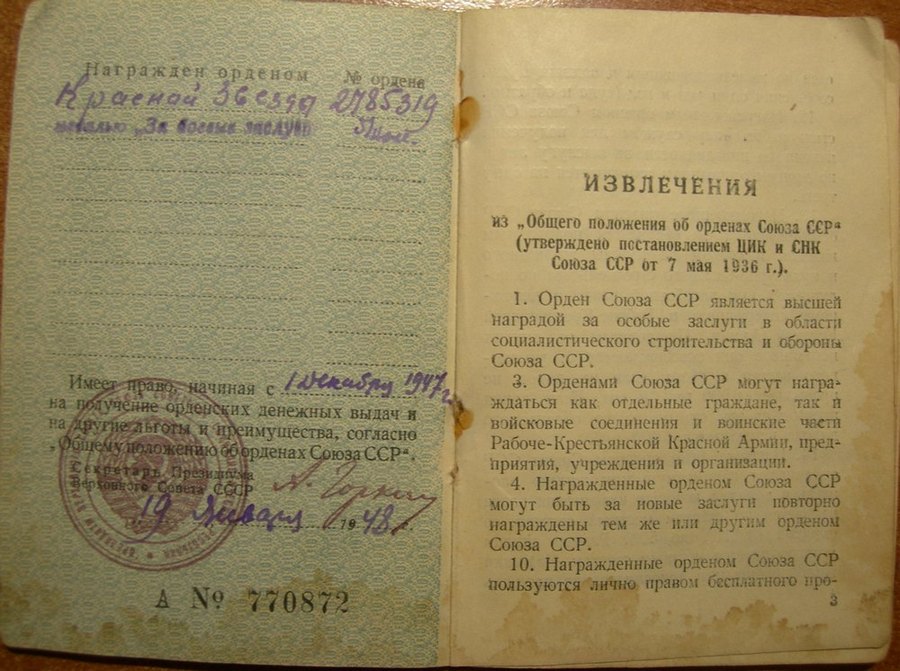 Награжден орденом № ордена
Красной Звезды 2785319
медалью „За боевые заслуги"
Имеет право, начиная с 1 декабря 1947 г.
на получение орденских денежных выдач и
на другие льготы и преимущества, согласно
„Общему положению об орденах Союза ССР".
Секретарь Президиума
Верховного Совета СССР А. Горкин
19 Января 1948 г.
А № 770872
ИЗВЛЕЧЕНИЯ
из „Общего положения об орденах Союза ССР"
(утверждено постановлением ЦИК и СНК
Союза ССР от 7 мая 1936 г.).
1. Орден Союза ССР является высшей
наградой за особые заслуги в области
социалистического строительства и обороны
Союза ССР.
3. Орденами Союза ССР могут награ-
ждаться как отдельные граждане, так и
войсковые соединения и воинские части
Рабоче-Крестьянской Красной Армии, пред-
приятия, учреждения и организации.
4. Награжденные орденом Союза ССР
могут быть за новые заслуги повторно
награждены тем же или другим орденом
Союза ССР.
10. Награжденные орденом Союза ССР
пользуются лично правом бесплатного про-
3